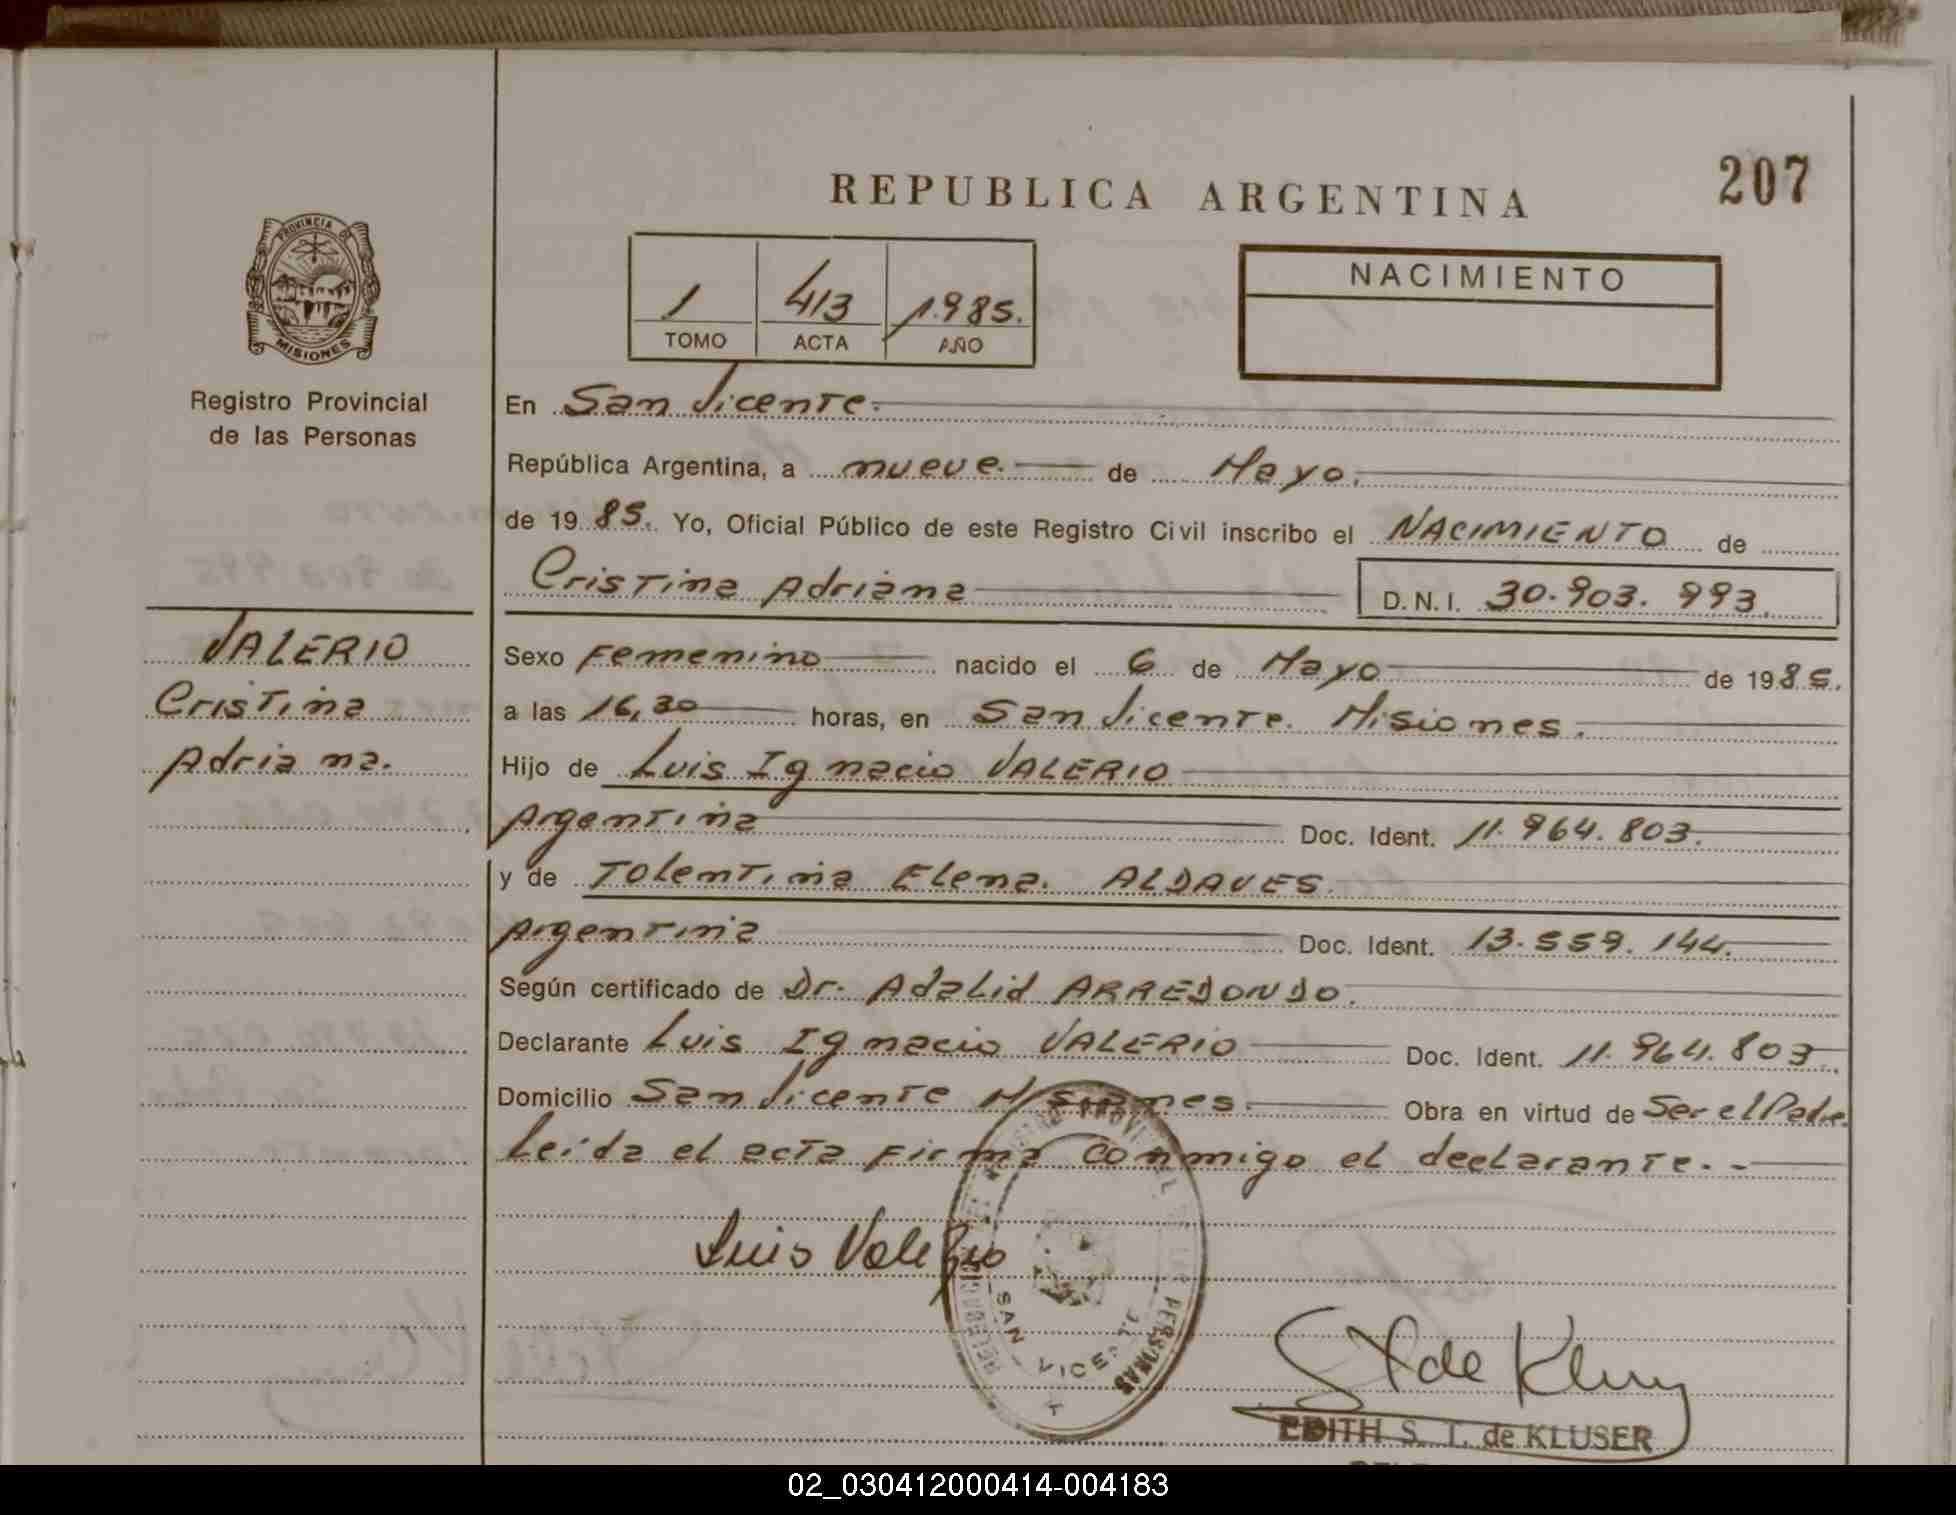 207
REPUBLICA ARGENTINA
PROVINCIA DE
MISIONES
Registro Provincial
de las Personas
1 413 1.985.
TOMO ACTA AÑO
NACIMIENTO
En San Vicente.
República Argentina, a nueve. de Mayo.
de 19 85. Yo, Oficial Público de este Registro Civil inscribo el NACIMIENTO de
Cristina Adriana D.N.I. 30.903.993.
VALERIO
Cristina
Adriana.
Sexo Femenino nacido el 6 de Mayo de 1985.
a las 16,30 horas, en San Vicente. Misiones.
Hijo de Luis Ignacio VALERIO
Argentina Doc. Ident. 11.964.803.
y de Tolentina Elena. ALDAVES.
Argentina Doc. Ident. 13.559.144.
Según certificado de Dr. Adalid ARREDONDO.
Declarante Luis Ignacio VALERIO Doc. Ident. 11.964.803.
Domicilio San Vicente Misiones. Obra en virtud de Ser el Padre.
Leída el acta firma conmigo el declarante.-
Luis Valerio
SAN VICE
PERSONAS
S T de Kluser
EDITH S. T. de KLUSER
02_030412000414-004183